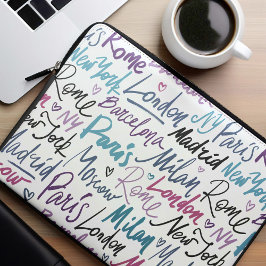 is Rome
New York London NY Paris
Rome Barcelona Madrid
New York Paris Milan
Madrid Moscow Rome London Rome
Paris Milan New York NY
London Milan